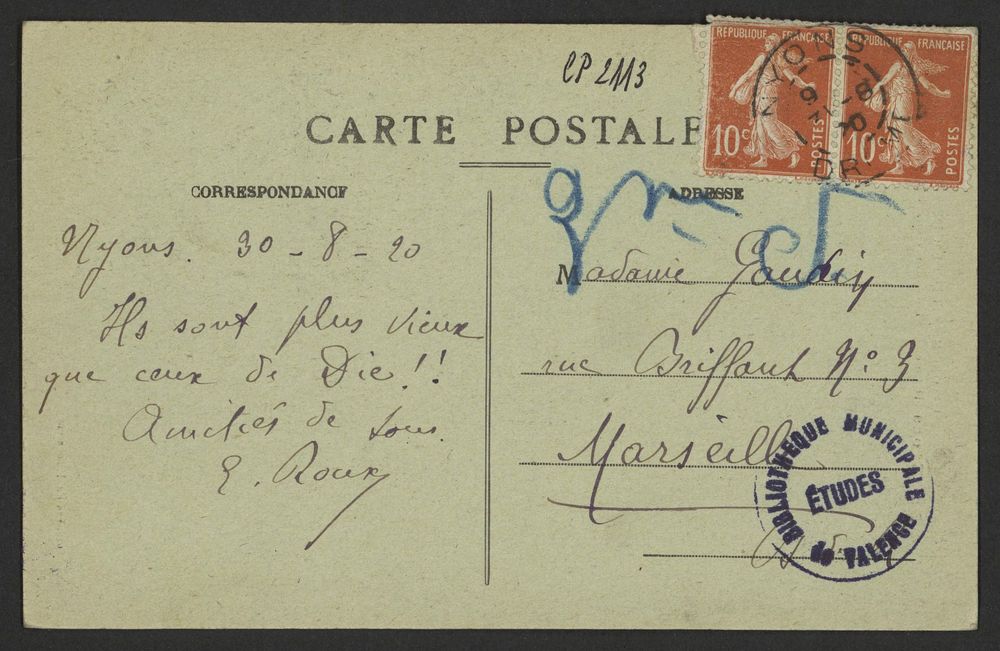 CP 2113
RÉPUBLIQUE FRANÇAISE
10c POSTES
RÉPUBLIQUE FRANÇAISE
10c POSTES
NYONS
CARTE POSTALE
CORRESPONDANCE
Nyons. 30-8-20
Ils sont plus vieux
que ceux de Die!!
Amitiés de tous.
E. Roux
ADRESSE
Madame Gaudin
rue Briffaut No 3
Marseille
BIBLIOTHEQUE MUNICIPALE
ÉTUDES
de VALENCE